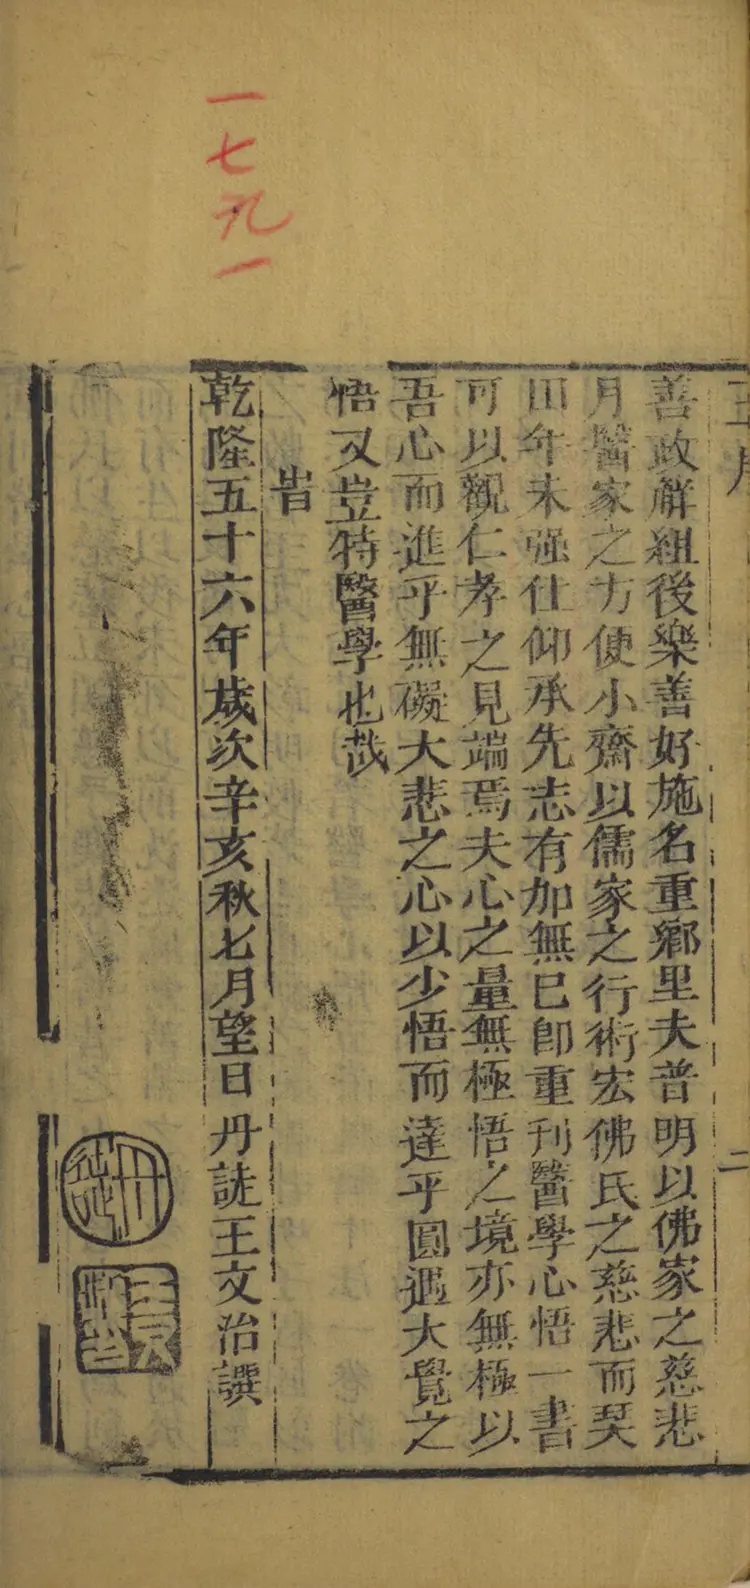 一七九一
二
善政解組後樂善好施名重鄉里夫普明以佛家之慈悲
月醫家之方便小齋以儒家之行術宏佛氏之慈悲而琹
田年未强仕仰承先志有加無已卽重刊醫學心悟一書
可以觀仁孝之見端焉夫心之量無極悟之境亦無極以
吾心而進乎無礙大悲之心以少悟而達乎圓遇大覺之
悟又豈特醫學也哉
旹
乾隆五十六年歲次辛亥秋七月望日丹詿王文治譔